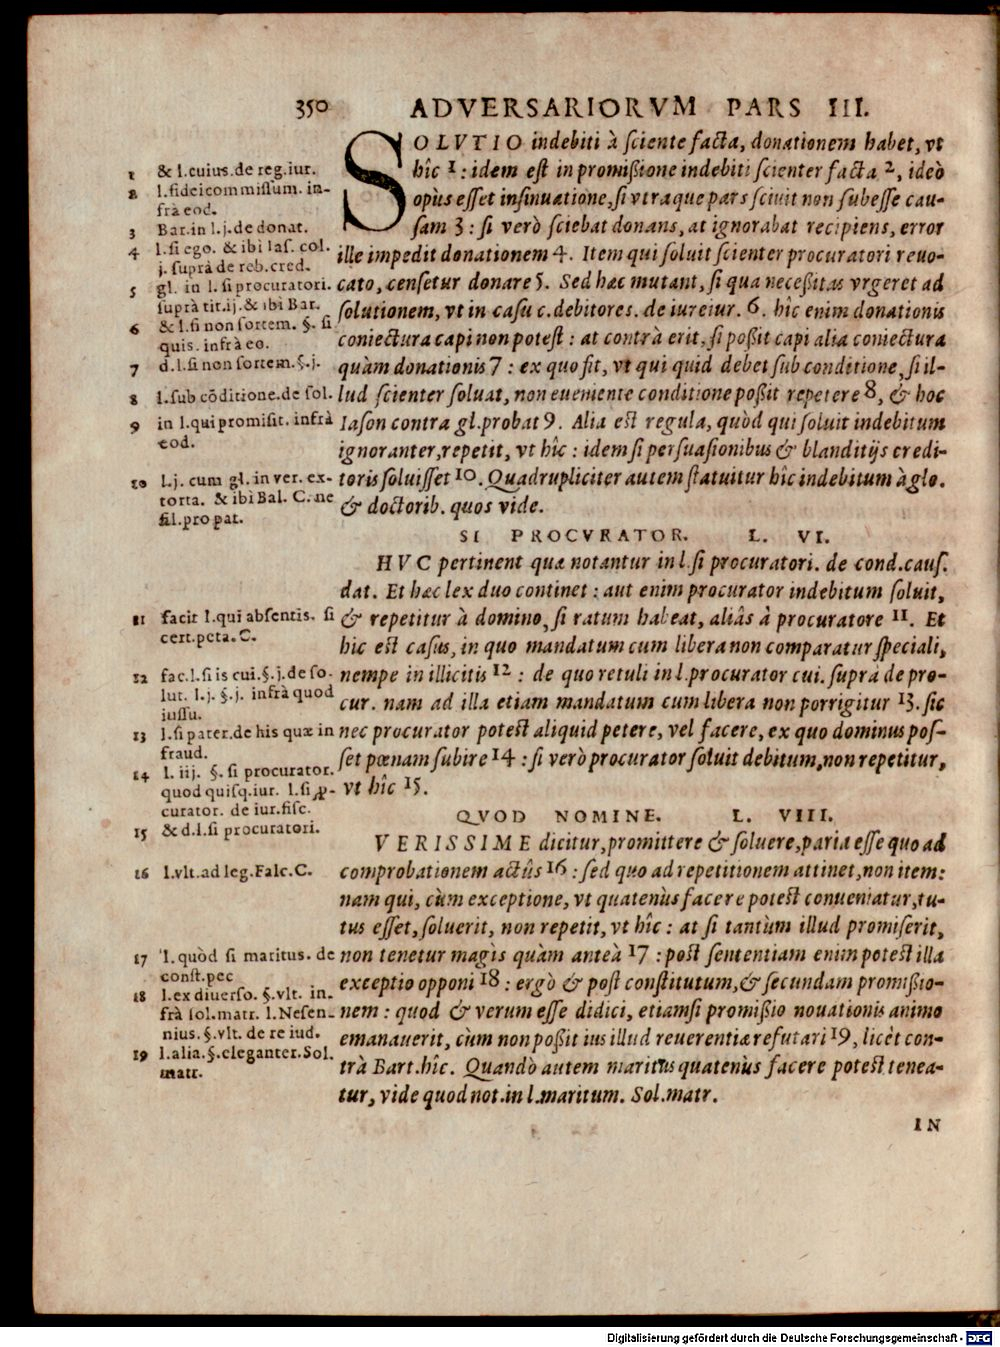 350 ADVERSARIORVM PARS III.
SOLVTIO indebiti à sciente facta, donationem habet, vt
hîc 1 : idem est in promißione indebiti scienter facta 2, ideò
opùs esset insinuatione, si vtraque pars sciuit non subesse cau-
sam 3 : si verò sciebat donans, at ignorabat recipiens, error
ille impedit donationem 4. Item qui soluit scienter procuratori reuo-
cato, censetur donare 5. Sed hæc mutant, si qua neceßitas vrgeret ad
solutionem, vt in casu c. debitores. de iureiur. 6. hîc enim donationis
coniectura capi non potest : at contrà erit, si poßit capi alia coniectura
quàm donationis 7 : ex quo fit, vt qui quid debet sub conditione, si il-
lud scienter soluat, non eueniente conditione poßit repetere 8, & hoc
Iason contra gl. probat 9. Alia est regula, quòd qui soluit indebitum
ignoranter, repetit, vt hîc : idem si persuasionibus & blanditijs credi-
toris soluisset 10. Quadrupliciter autem statuitur hîc indebitum à glo.
& doctorib. quos vide.
1 & l. cuius. de reg. iur.
2 l. fideicommissum. in-
frà eod.
3 Bar. in l. j. de donat.
4 l. si ego. & ibi Ias. col.
j. suprà de reb. cred.
5 gl. in l. si procuratori.
suprà tit. ij. & ibi Bar.
6 & l. si non sortem. §. si
quis. infrà eo.
7 d. l. si non sortem. §. j.
8 l. sub cōditione. de sol.
9 in l. qui promisit. infrà
eod.
10 l. j. cum gl. in ver. ex-
torta. & ibi Bal. C. ne
fil. pro pat.
SI PROCVRATOR. L. VI.
HVC pertinent quæ notantur in l. si procuratori. de cond. caus.
dat. Et hæc lex duo continet : aut enim procurator indebitum soluit,
& repetitur à domino, si ratum habeat, aliâs à procuratore 11. Et
hic est casus, in quo mandatum cum libera non comparatur speciali,
nempe in illicitis 12 : de quo retuli in l. procurator cui. suprà de pro-
cur. nam ad illa etiam mandatum cum libera non porrigitur 13. sic
nec procurator potest aliquid petere, vel facere, ex quo dominus pos-
set pœnam subire 14 : si verò procurator soluit debitum, non repetitur,
vt hîc 15.
11 facit l. qui absentis. si
cert. peta. C.
12 fac. l. si is cui. §. j. de so-
lut. l. j. §. j. infrà quod
iussu.
13 l. si pater. de his quæ in
fraud.
14 l. iij. §. si procurator.
quod quisq. iur. l. si ꝓ-
curator. de iur. fisc.
15 & d. l. si procuratori.
QVOD NOMINE. L. VIII.
VERISSIME dicitur, promittere & soluere, paria esse quo ad
comprobationem actûs 16 : sed quo ad repetitionem attinet, non item:
nam qui, cùm exceptione, vt quatenùs facere potest conueniatur, tu-
tus esset, soluerit, non repetit, vt hîc : at si tantùm illud promiserit,
non tenetur magis quàm anteà 17 : post sententiam enim potest illa
exceptio opponi 18 : ergò & post constitutum, & secundam promißio-
nem : quod & verum esse didici, etiamsi promißio nouationis animo
emanauerit, cùm non poßit ius illud reuerentiæ refutari 19, licèt con-
trà Bart. hîc. Quandò autem maritus quatenùs facere potest tenea-
tur, vide quod not. in l. maritum. Sol. matr.
16 l. vlt. ad leg. Falc. C.
17 l. quòd si maritus. de
const. pec
18 l. ex diuerso. §. vlt. in-
frà sol. matr. l. Nesen-
nius. §. vlt. de re iud.
19 l. alia. §. eleganter. Sol.
matr.
IN
Digitalisierung gefördert durch die Deutsche Forschungsgemeinschaft - DFG